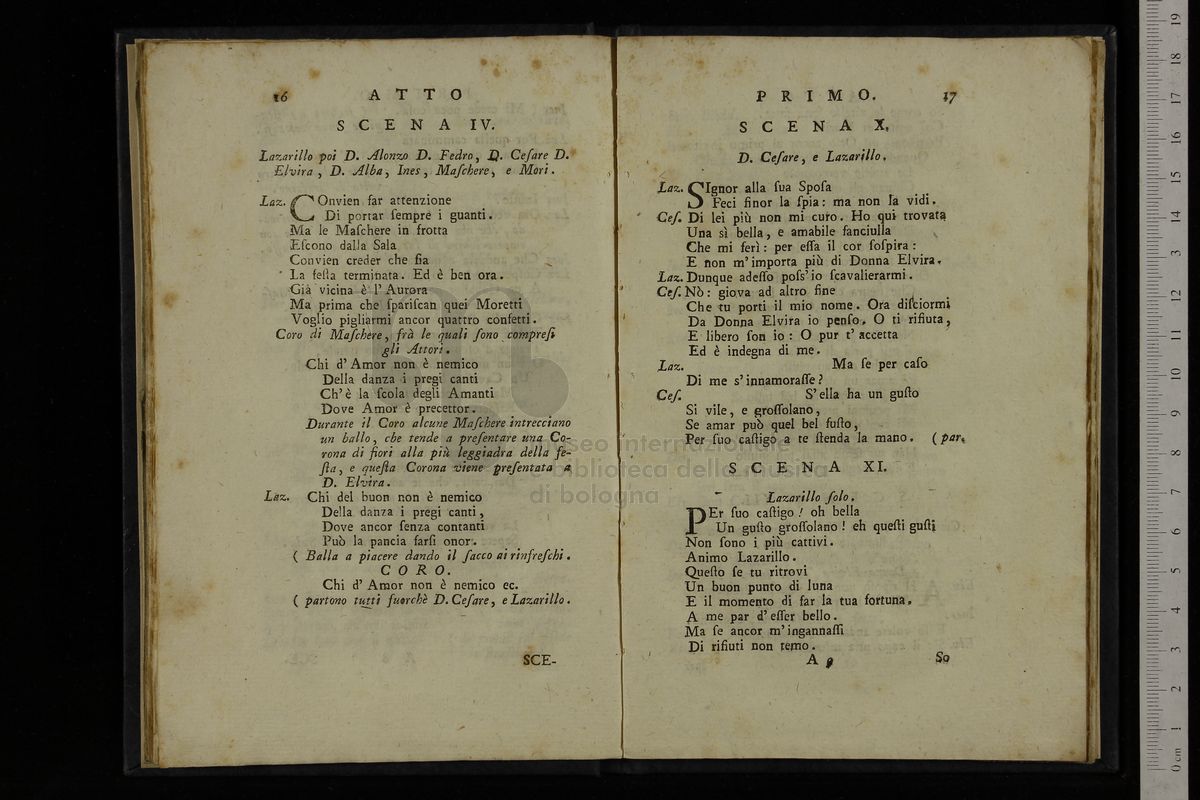 16 ATTO
SCENA IV.
Lazarillo poi D. Alonzo D. Fedro, D. Ceſare D.
Elvira, D. Alba, Ines, Maſchere, e Mori.
Laz. COnvien far attenzione
Di portar ſempre i guanti.
Ma le Maſchere in frotta
Eſcono dalla Sala
Convien creder che ſia
La feſta terminata. Ed è ben ora.
Già vicina è l'Aurora
Ma prima che ſpariſcan quei Moretti
Voglio pigliarmi ancor quattro confetti.
Coro di Maſchere, frà le quali ſono compreſi
gli Attori.
Chi d'Amor non è nemico
Della danza i pregi canti
Ch'è la ſcola degli Amanti
Dove Amor è precettor.
Durante il Coro alcune Maſchere intrecciano
un ballo, che tende a preſentare una Co-
rona di fiori alla più leggiadra della fe-
ſta, e queſta Corona viene preſentata a
D. Elvira.
Laz. Chi del buon non è nemico
Della danza i pregi canti,
Dove ancor ſenza contanti
Può la pancia farſi onor.
( Balla a piacere dando il ſacco ai rinfreſchi.
CORO.
Chi d'Amor non è nemico ec.
( partono tutti fuorchè D. Ceſare, e Lazarillo.
SCE-
PRIMO. 17
SCENA X.
D. Ceſare, e Lazarillo.
Laz. SIgnor alla ſua Spoſa
Feci finor la ſpia: ma non la vidi.
Ceſ. Di lei più non mi curo. Ho qui trovata
Una sì bella, e amabile fanciulla
Che mi ferì: per eſſa il cor ſoſpira:
E non m'importa più di Donna Elvira.
Laz. Dunque adeſſo poſs'io ſcavalierarmi.
Ceſ. Nò: giova ad altro fine
Che tu porti il mio nome. Ora diſciormi
Da Donna Elvira io penſo. O ti rifiuta,
E libero ſon io: O pur t'accetta
Ed è indegna di me.
Laz. Ma ſe per caſo
Di me s'innamoraſſe?
Ceſ. S'ella ha un guſto
Si vile, e groſſolano,
Se amar può quel bel fuſto,
Per ſuo caſtigo a te ſtenda la mano. (par.
SCENA XI.
Lazarillo ſolo.
PEr ſuo caſtigo! oh bella
Un guſto groſſolano! eh queſti guſti
Non ſono i più cattivi.
Animo Lazarillo.
Queſto ſe tu ritrovi
Un buon punto di luna
E il momento di far la tua fortuna.
A me par d'eſſer bello.
Ma ſe ancor m'ingannaſſi
Di rifiuti non temo.
A 9 So
museo internazionale
e biblioteca della musica
di bologna
0 cm 1 2 3 4 5 6 7 8 9 10 11 12 13 14 15 16 17 18 19